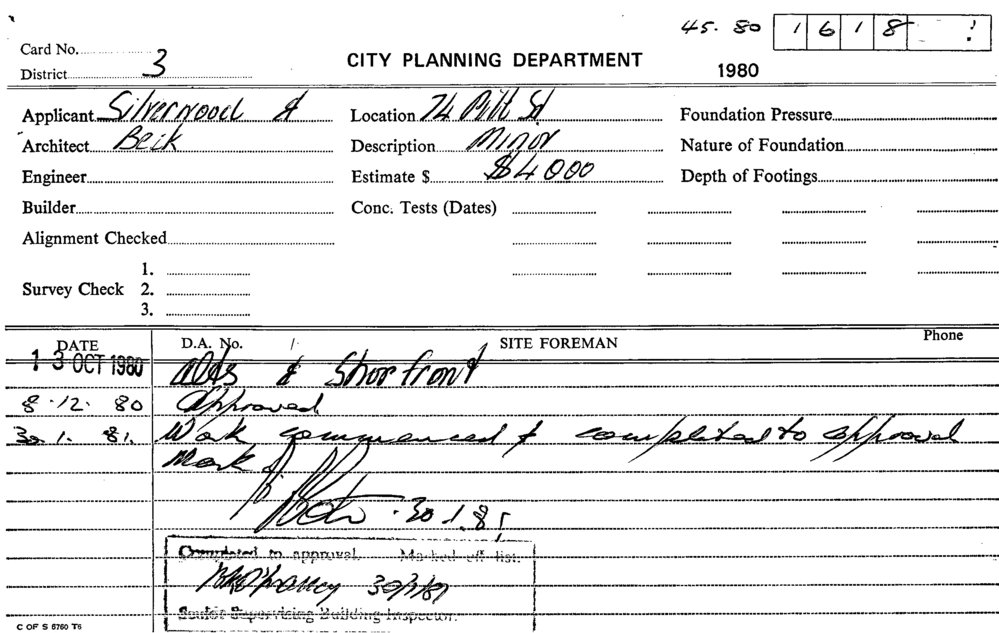 45. 80 1618
Card No.
District 3
CITY PLANNING DEPARTMENT
1980
Applicant Silverwood &
Location 74 Pitt St
Foundation Pressure
Architect Beck
Description Minor
Nature of Foundation
Engineer
Estimate $ $4000
Depth of Footings
Builder
Conc. Tests (Dates)
Alignment Checked
1.
Survey Check 2.
3.
DATE D.A. No. SITE FOREMAN Phone
13 OCT 1980 Alts & Shopfront
8.12.80 Approved
30.1.81. Work commenced & completed to approval
Mark
30.1.81
Completed to approval. Marked off list.
30/1/81
Senior Supervising Building Inspector.
C OF S 5760 T6